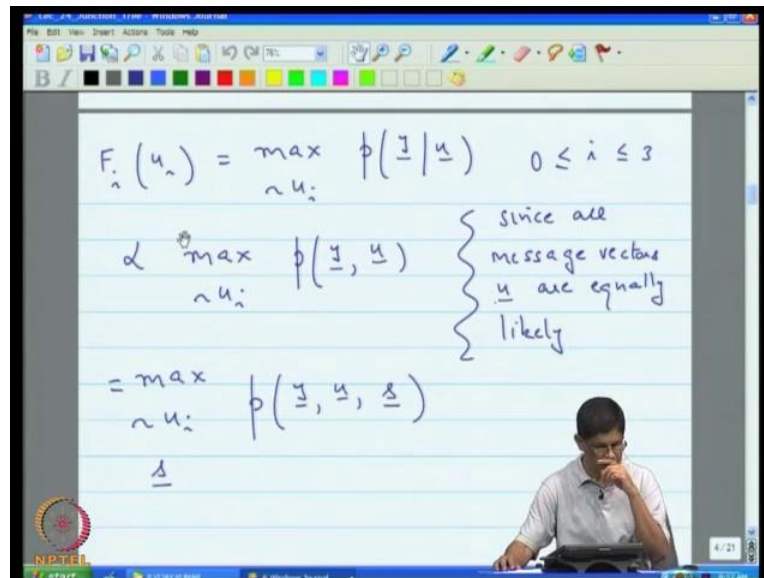 Lec_24_Junction_Tree - Windows Journal
File Edit View Insert Actions Tools Help
76%
B I
F_i (u_i) = max_{~u_i} p(y | u) 0 ≤ i ≤ 3
α max_{~u_i} p(y, u) { since all
message vectors
u are equally
likely
= max_{~u_i, s} p(y, u, s)
4/21
NPTEL
start